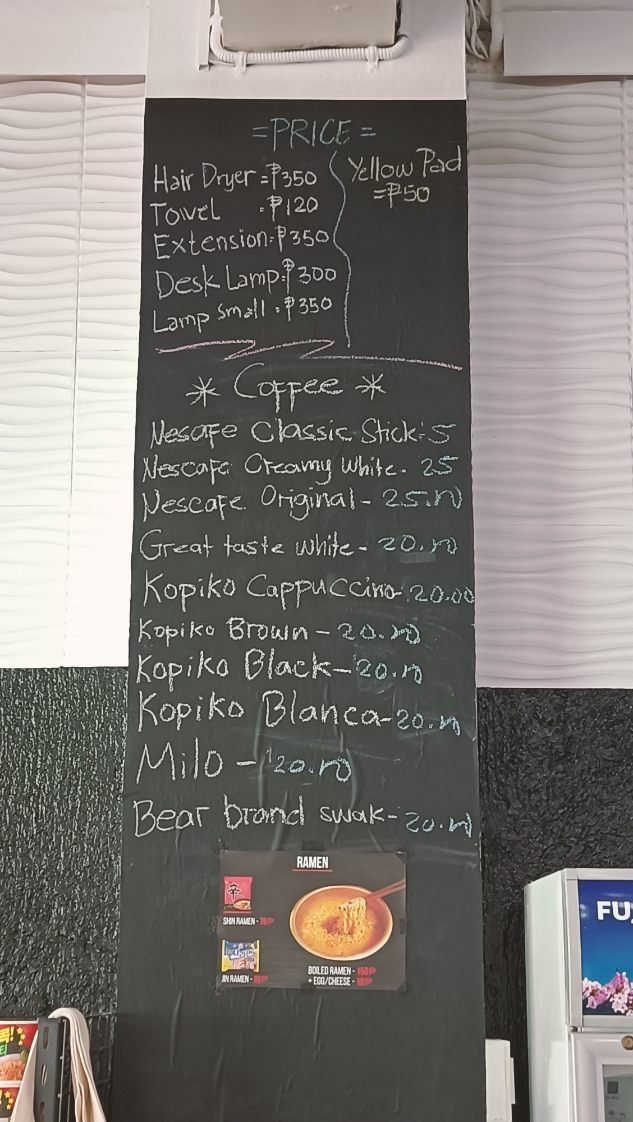 =PRICE=
Hair Dryer=₱350
Towel :₱120
Extension:₱350
Desk Lamp:₱300
Lamp small :₱350
Yellow Pad
=₱50
* Coffee *
Nescafe Classic Stick:5
Nescafe Creamy White- 25
Nescafe Original- 25.00
Great taste white- 20.00
Kopiko Cappuccino-20.00
Kopiko Brown - 20.00
Kopiko Black-20.00
Kopiko Blanca-20.00
Milo - 20.00
Bear brand swak-20.00
RAMEN
辛
SHIN RAMEN -
JIN RAMEN -
BOILED RAMEN - 150₱
+ EGG/CHEESE - 10₱
FU